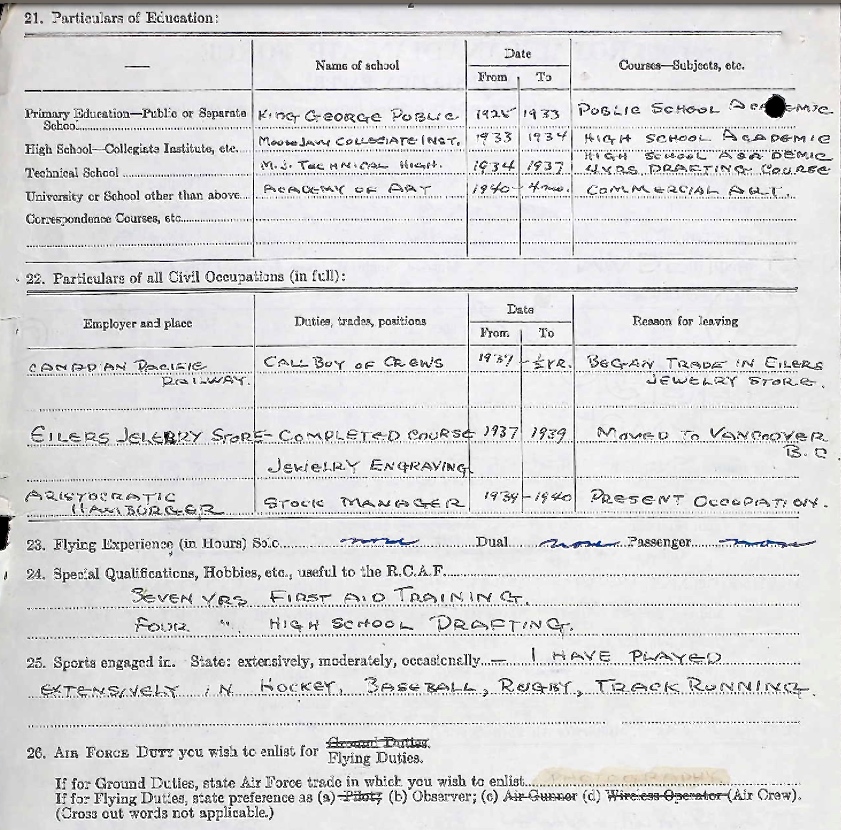 21. Particulars of Education:
Name of school
Date
From To
Courses—Subjects, etc.
Primary Education—Public or Separate School KING GEORGE PUBLIC 1925 1933 PUBLIC SCHOOL ACADEMIC
High School—Collegiate Institute, etc. MOOSE JAW COLLEGIATE INST. 1933 1934 HIGH SCHOOL ACADEMIC
HIGH SCHOOL ACADEMIC
Technical School M.J. TECHNICAL HIGH. 1934 1937 4 YRS DRAFTING COURSE
University or School other than above ACADEMY OF ART 1940 - 4 mo. COMMERCIAL ART.
Correspondence Courses, etc.
22. Particulars of all Civil Occupations (in full):
Employer and place Duties, trades, positions Date Reason for leaving
From To
CANADIAN PACIFIC CALL BOY OF CREWS 1937 - ½ YR. BEGAN TRADE IN EILERS
RAILWAY. JEWELRY STORE.
EILERS JELERRY STORE - COMPLETED COURSE 1937 1939 MOVED TO VANCOUVER
B.C
JEWELRY ENGRAVING
ARISTOCRATIC STOCK MANAGER 1939 - 1940 PRESENT OCCUPATION.
HAMBURGER
23. Flying Experience (in Hours) Solo none Dual none Passenger none
24. Special Qualifications, Hobbies, etc., useful to the R.C.A.F.
SEVEN YRS FIRST AID TRAINING.
FOUR " HIGH SCHOOL DRAFTING.
25. Sports engaged in. State: extensively, moderately, occasionally.— I HAVE PLAYED
EXTENSIVELY IN HOCKEY, BASEBALL, RUGBY, TRACK RUNNING.
26. AIR FORCE DUTY you wish to enlist for Ground Duties.
Flying Duties.
If for Ground Duties, state Air Force trade in which you wish to enlist
If for Flying Duties, state preference as (a) Pilot; (b) Observer; (c) Air Gunner (d) Wireless Operator (Air Crew).
(Cross out words not applicable.)